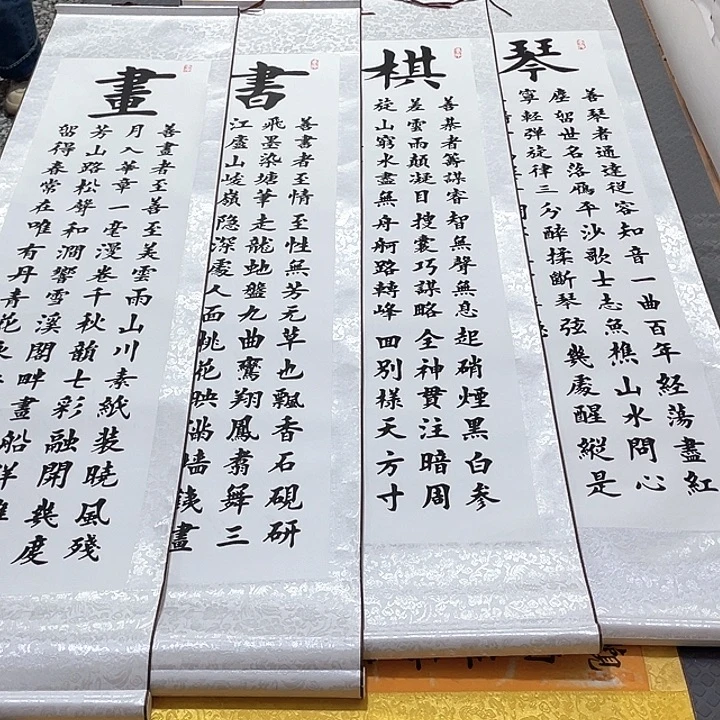 琴
善琴者通達從容知音一曲百年經蕩盡紅
塵留世名落雁平沙歌士志魚樵山水問心
寧輕彈旋律三分醉揉斷琴弦幾處醒縱是
棋
善棊者籌謀睿智無聲無息起硝煙黑白參
差雲雨顛凝目搜囊巧謀略全神貫注暗周
旋山窮水盡無舟舸路轉峰回別樣天方寸
書
善書者至情至性無芳元草也飄香石硯研
飛墨染塘華走龍虵盤九曲鸞翔鳳翥舞三
江廬山峻嶺隐深處人面桃花映滿墻
畫
善畫者至善至美雲雨山川素紙装曉風殘
月入華章一毫漫卷千秋韻七彩融開幾度
芳山路松聲和澗響雪溪閣畔畫船
留得春常在唯有丹青花